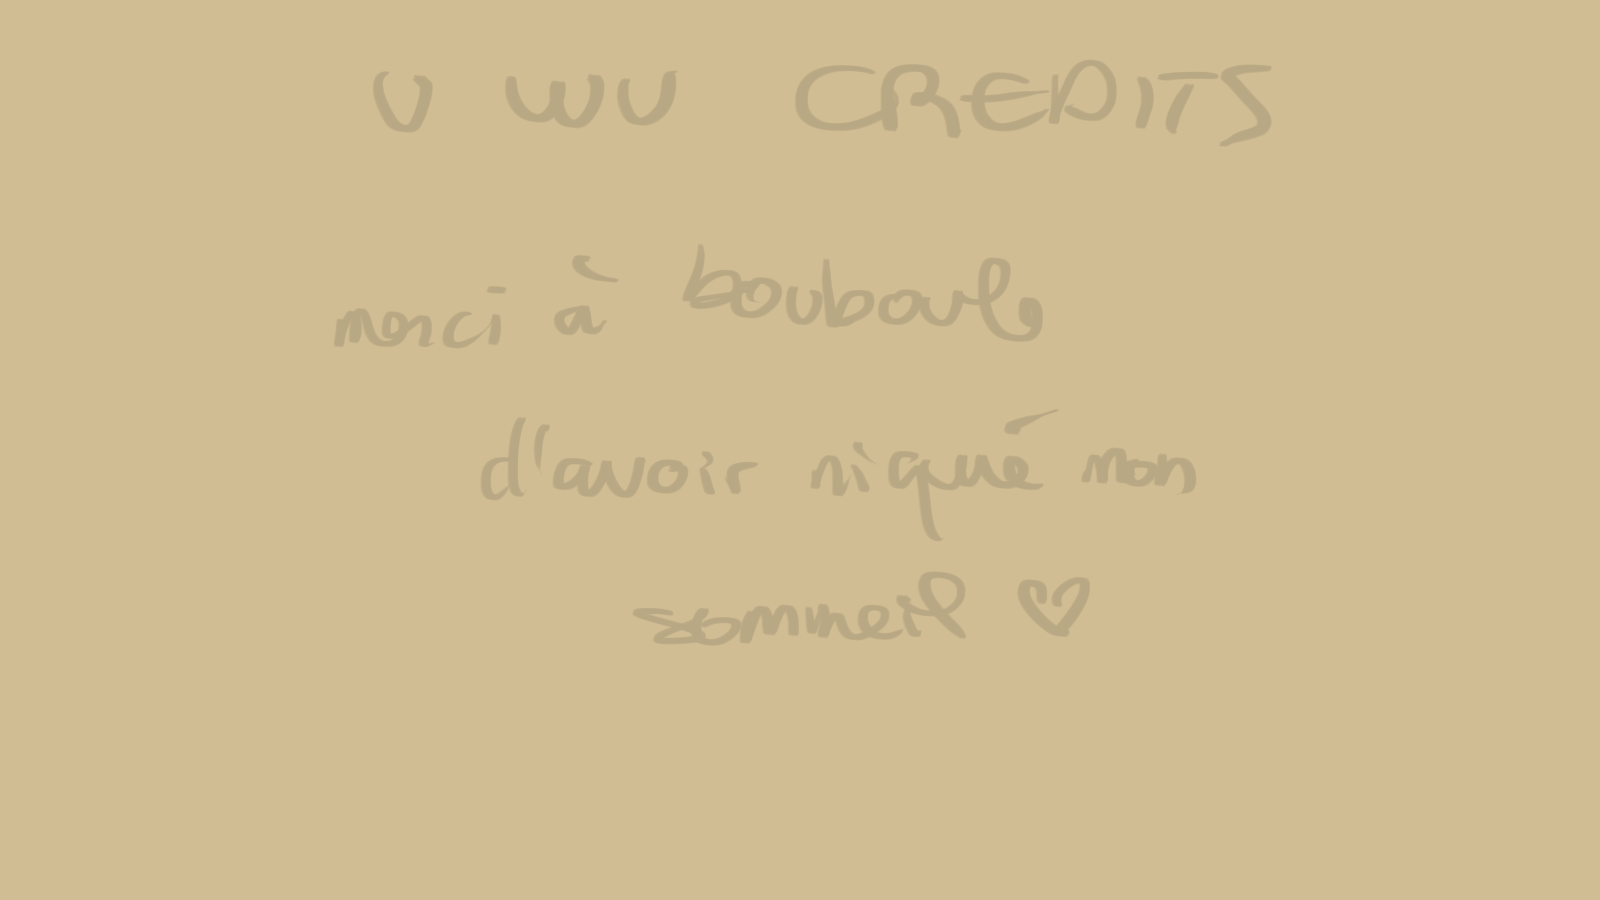 U WU CREDITS
merci à bouboule
d'avoir niqué mon
sommeil ♡